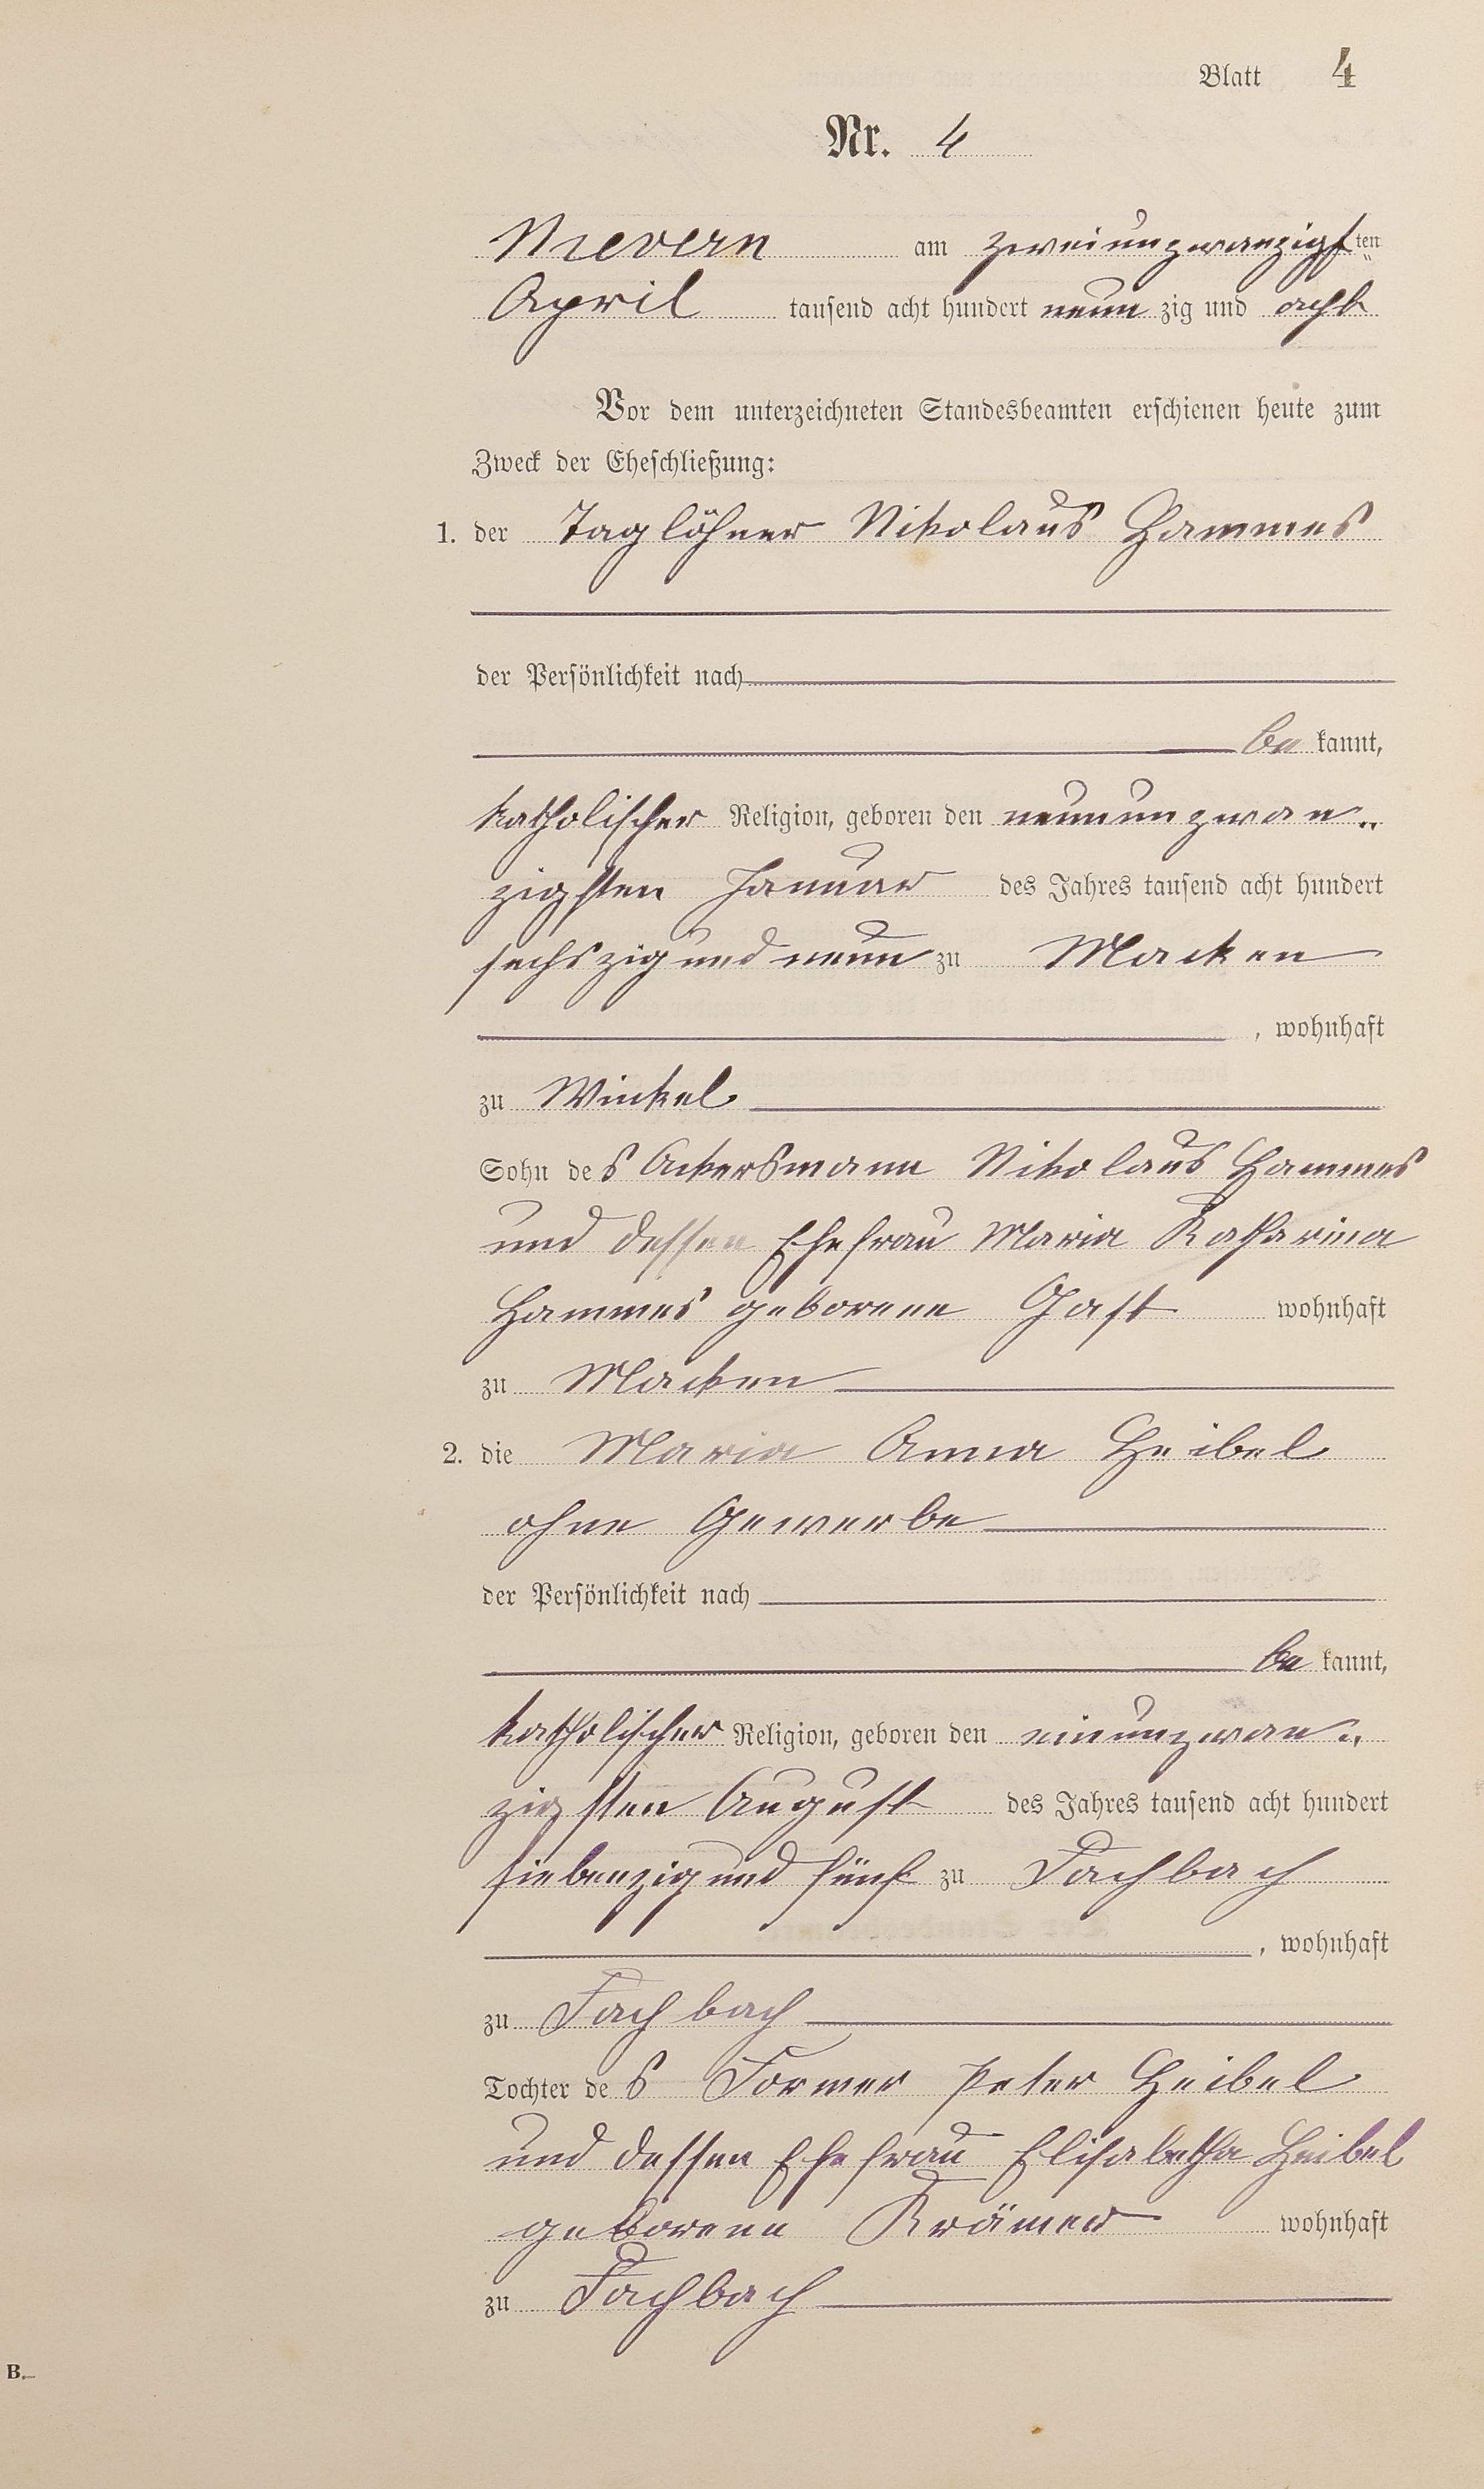 Blatt 4
Nr. 4
Nievern am zweiunzwanzigsten
April tausend acht hundert neun zig und acht
Vor dem unterzeichneten Standesbeamten erschienen heute zum
Zweck der Eheschließung:
1. der Taglöhner Nikolaus Hammes
der Persönlichkeit nach
be kannt,
katholischer Religion, geboren den neunundzwan„
zigsten Januar des Jahres tausend acht hundert
sechszig und neun zu Macken
, wohnhaft
zu Winkel
Sohn des Ackersmann Nikolaus Hammes
und dessen Ehefrau Maria Katharina
Hammes geborene Gast wohnhaft
zu Macken
2. die Maria Anna Heibel
ohne Gewerbe
der Persönlichkeit nach
be kannt,
katholischer Religion, geboren den einunzwan„
zigsten August des Jahres tausend acht hundert
siebenzig und fünf zu Fachbach
, wohnhaft
zu Fachbach
Tochter des Former Peter Heibel
und dessen Ehefrau Elisabetha Heibel
geborene Krämer wohnhaft
zu Fachbach
B.